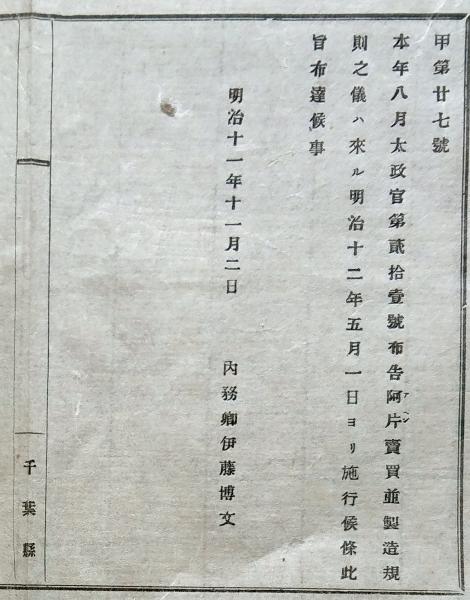 甲第廿七號
本年八月太政官第貳拾壹號布告阿片賣買並製造規
アヘン
則之儀ハ來ル明治十二年五月一日ヨリ施行候條此
旨布達候事
明治十一年十一月二日　內務卿伊藤博文
千葉縣